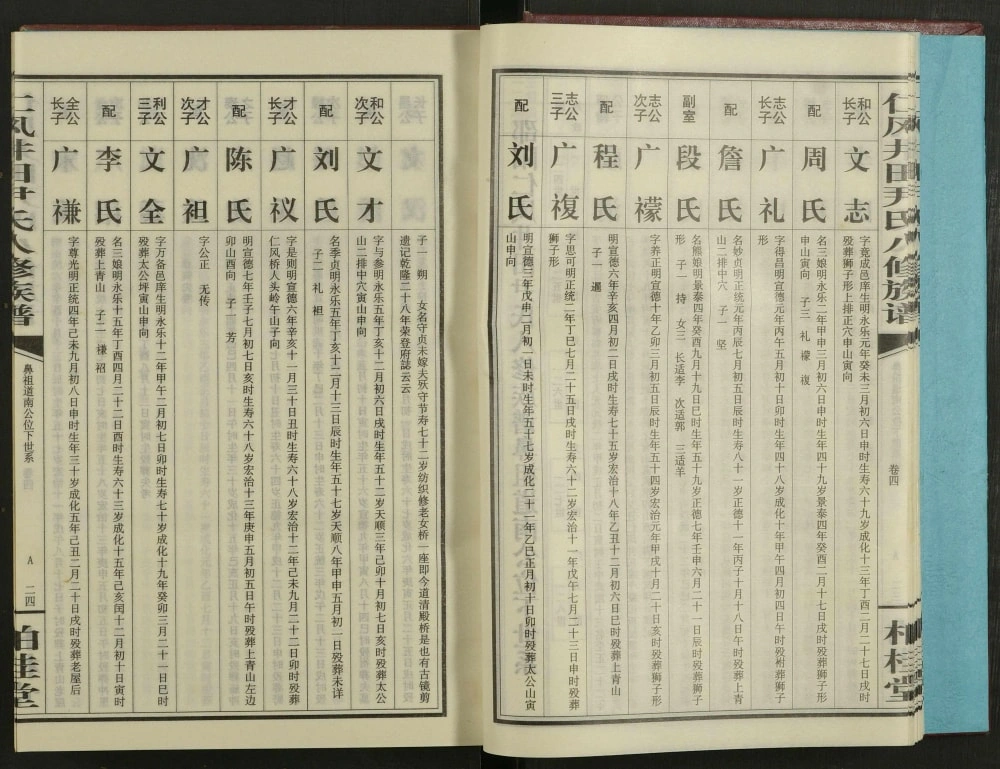 仁风井田尹氏八修族谱
卷四
柏桂堂
和公长子
文志
字竞成邑庠生明永乐元年癸未三月初六日申时生寿六十九岁成化十三年丁酉二月二十七日戌时
殁葬狮子形上排正穴申山寅向
配
周氏
名三娘明永乐二年甲申三月初六日申时生年四十九岁景泰四年癸酉二月十七日戌时殁葬狮子形
申山寅向 子三 礼 檬 複
志公长子
广礼
字得昌明宣德元年丙午五月初十日卯时生年四十八岁成化十年甲午四月初四日午时殁袝葬狮子
形
配
詹氏
名妙贞明正统元年丙辰七月初五日辰时生寿八十一岁正德十一年丙子十月十八日午时殁葬上青
山二排中穴 子一 坚
副室
段氏
名熊娘明景泰四年癸酉九月十九日巳时生年五十九岁正德七年壬申六月二十一日辰时殁葬狮子
形 子一 持 女三 长适李 次适郭 三适羊
志公次子
广檬
字养正明宣德十年乙卯三月初五日辰时生年五十四岁宏治元年甲戌十月二十日亥时殁葬狮子形
配
程氏
明宣德六年辛亥四月初二日戌时生寿七十五岁宏治十八年乙丑十二月初六日巳时殁葬上青山
子一 暹
志公三子
广複
字思可明正统二年丁巳七月二十五日戌时生寿六十二岁宏治十一年戊午七月二十三日申时殁葬
狮子形
配
刘氏
明宣德三年戊申二月初一日未时生年五十七岁成化二十一年乙巳正月初十日卯时殁葬太公山寅
山申向
子一 朔 女名守贞未嫁夫殀守节寿七十二岁纺织修老女桥一座即今道清殿桥是也有古镜剪
遗记乾隆二十八年荣登府誌云云
和公次子
文才
字与参明永乐五年丁亥十二月初六日戌时生年五十二岁天顺三年己卯十月初七日亥时殁葬太公
山二排中穴寅山申向
配
刘氏
名季贞明永乐五年丁亥十二月十三日辰时生年五十七岁天顺八年甲申五月初一日殁葬未详
子二 礼 袒
才公长子
广礼
字是则明宣德六年辛亥十一月三十日丑时生寿六十八岁宏治十二年己未九月二十二日卯时殁葬
仁风桥人头岭午山子向
配
陈氏
明宣德七年壬子七月初七日亥时生寿六十八岁宏治十三年庚申五月初五日午时殁葬上青山左边
卯山酉向 子一 芳
才公次子
广袒
字公正 无传
利公三子
文全
字万备邑庠生明永乐十二年甲午二月初七日卯时生寿七十岁成化十九年癸卯三月二十一日巳时
殁葬太公坪寅山申向
配
李氏
名三娘明永乐十五年丁酉四月二十二日酉时生寿六十三岁成化十五年己亥闰十二月初十日寅时
殁葬上青山 子二 禣 祒
全公长子
广禣
字尊光明正统四年己未九月初八日申时生年三十岁成化五年己丑二月二十日戌时殁葬老屋后
仁风井田尹氏八修族谱
鼻祖道南公位下世系
A 二四
柏桂堂